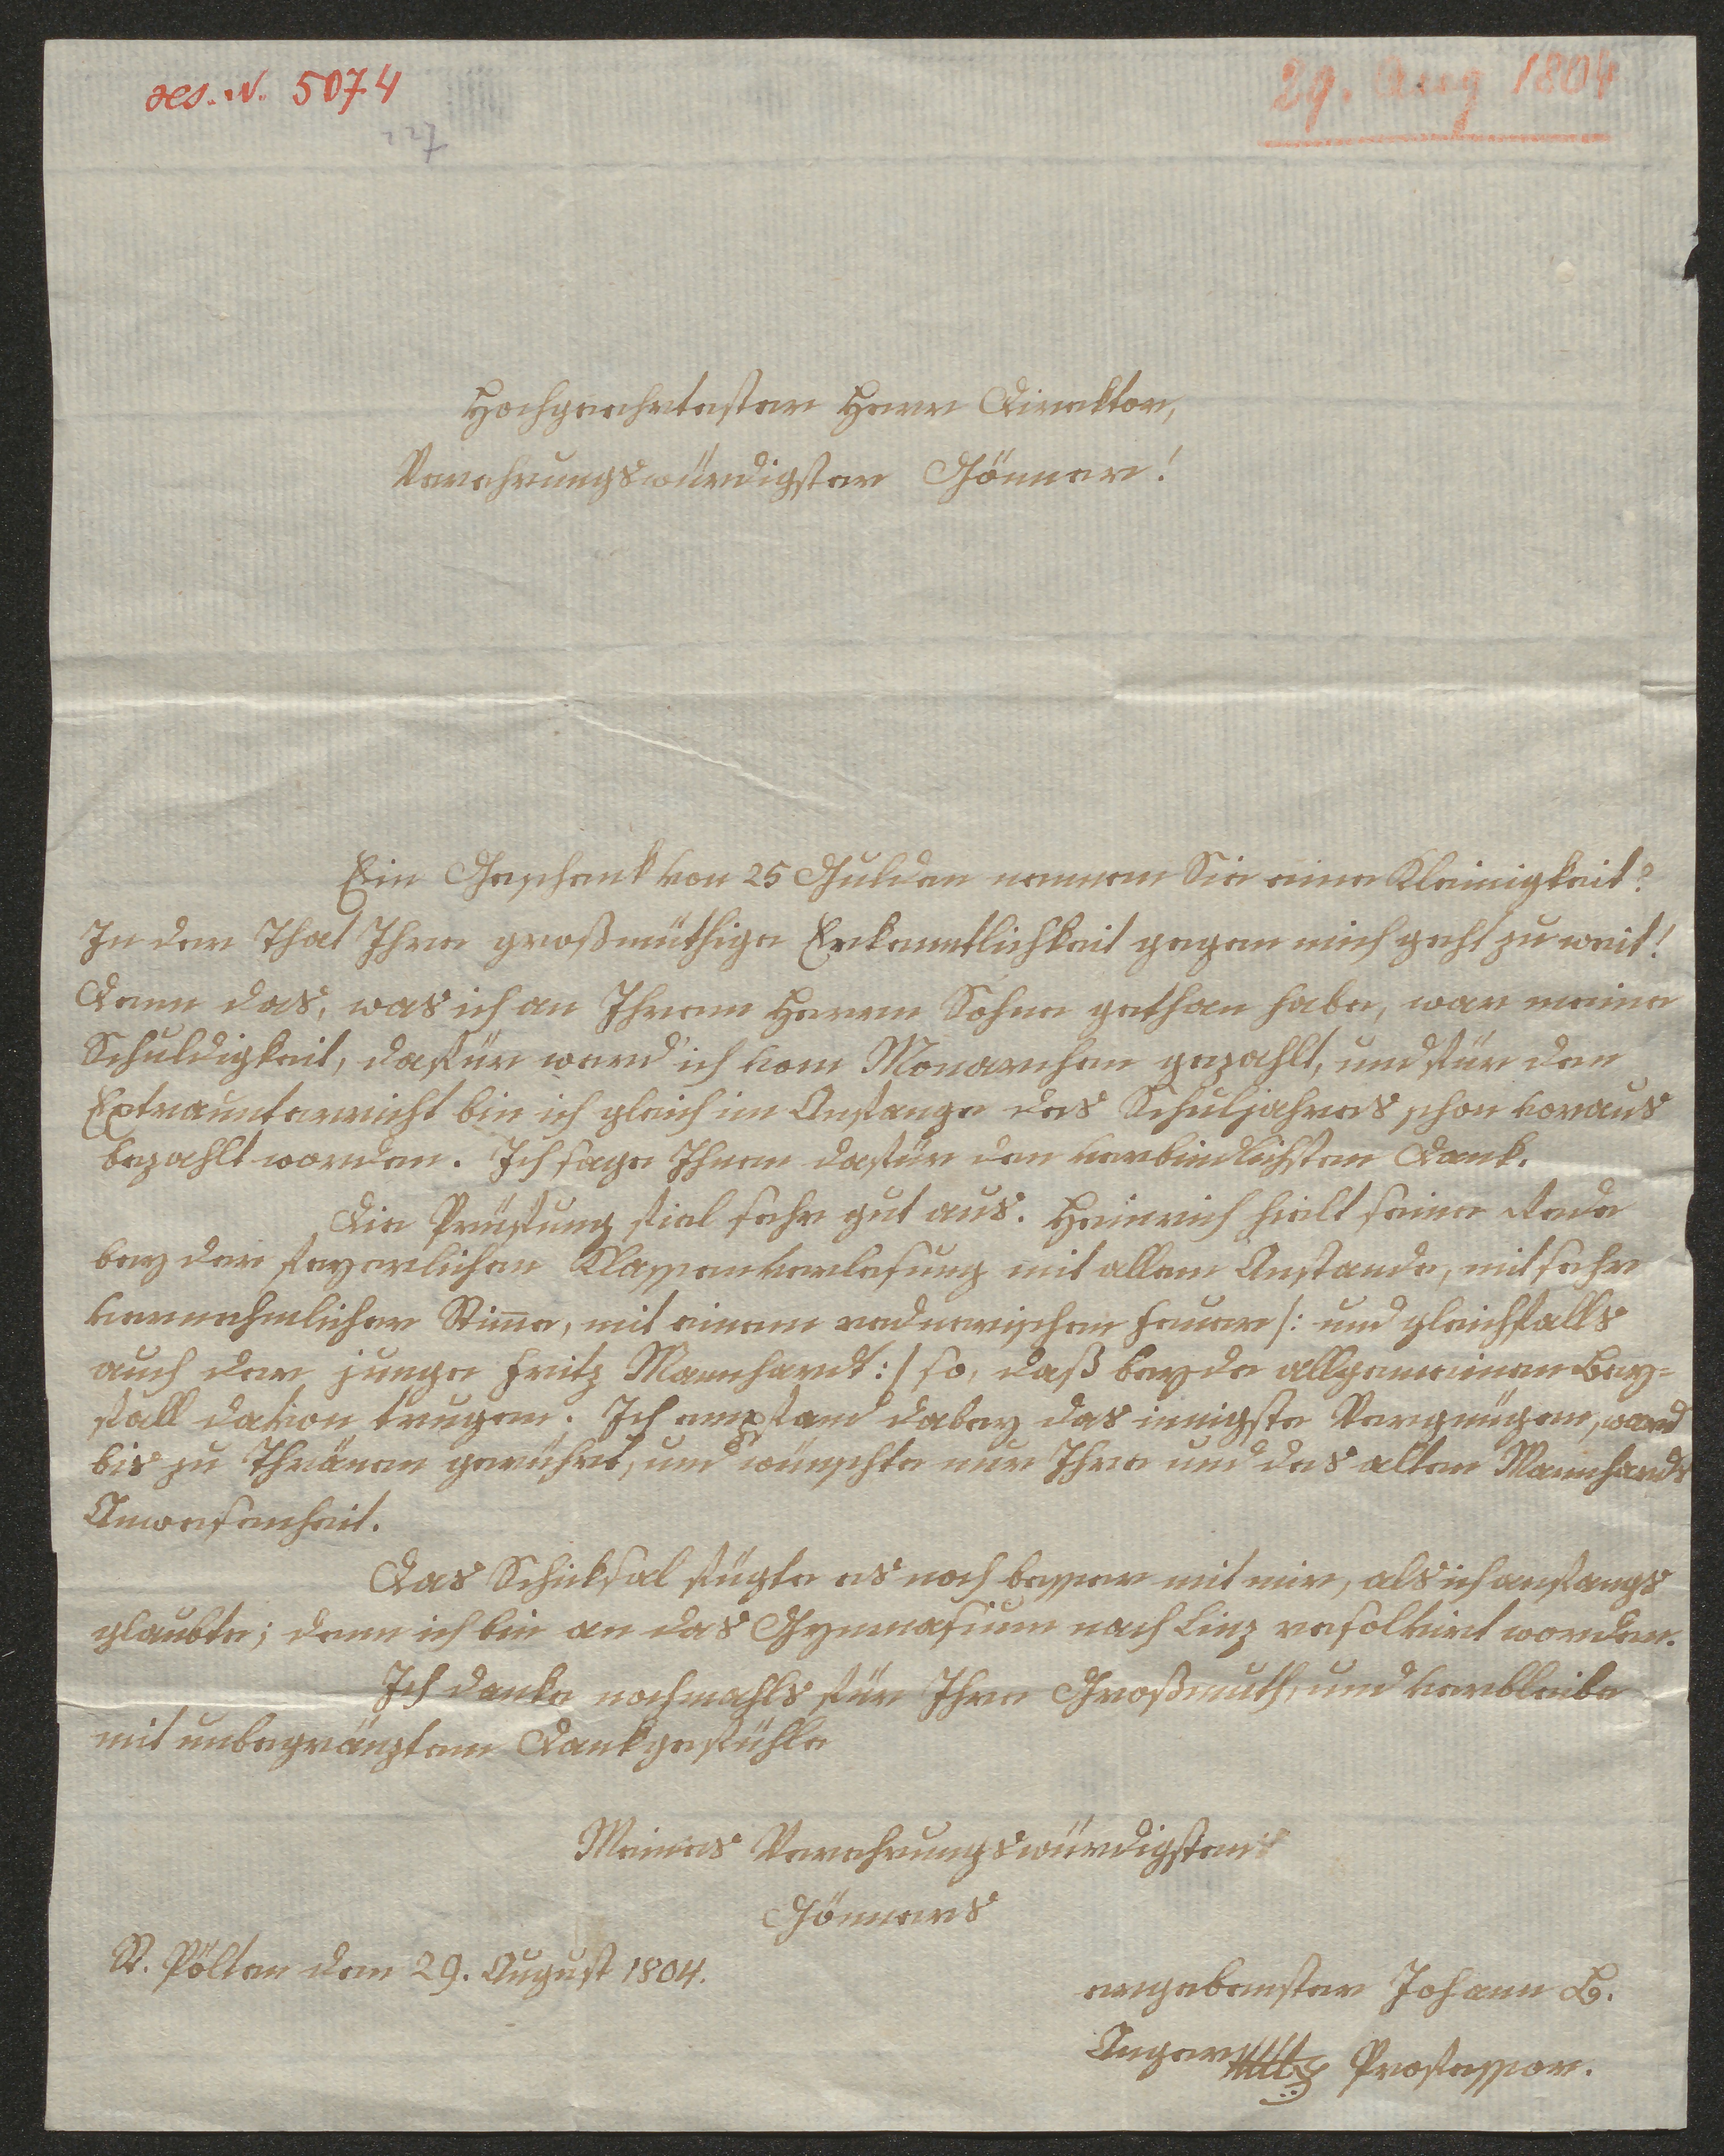 aes. N. 5074
227
29. Aug 1804
Hochgeehrtester Herr Direktor,
Verehrungswürdigster Gönner!
Ein Geschenk von 25 Gulden nennen Sie eine Kleinigkeit?
In der That Ihre großmüthige Erkenntlichkeit gegen mich geht zu weit!
Denn das, was ich an Ihrem Herrn Sohne gethan habe, war meine
Schuldigkeit, dafür werd' ich vom Monarchen gezahlt, und für den
Extraunterricht bin ich gleich im Anfange des Schuljahres schon voraus
bezahlt worden. Ich sage Ihnen dafür den verbindlichsten Dank.
Die Prüfung fiel sehr gut aus. Heinrich hielt seine Rede
bey der feyerlichen Klassenverlesung mit allem Anstande, mit sehr
vernehmlicher Stimme, mit einem rednerischen Feuer /: und gleichfalls
auch der junge Fritz Mannhardt :/ so, daß beyde allgemeinen Bey=
fall davon trugen. Ich empfand dabey das innigste Vergnügen, ward
bis zu Thränen gerührt, und wünschte nur Ihre und des alten Mannhardt
Anwesenheit.
Das Schicksal fügte es noch besser mit mir, als ich anfangs
glaubte; denn ich bin an das Gymnasium nach Linz resolvirt worden.
Ich danke nochmahls für Ihre Großmuth, und verbleibe
mit unbegränztem Dankgefühle
Meines Verehrungswürdigsten
Gönners
St. Pölten den 29. August 1804.
ergebenster Johann B.
Anger Professor.